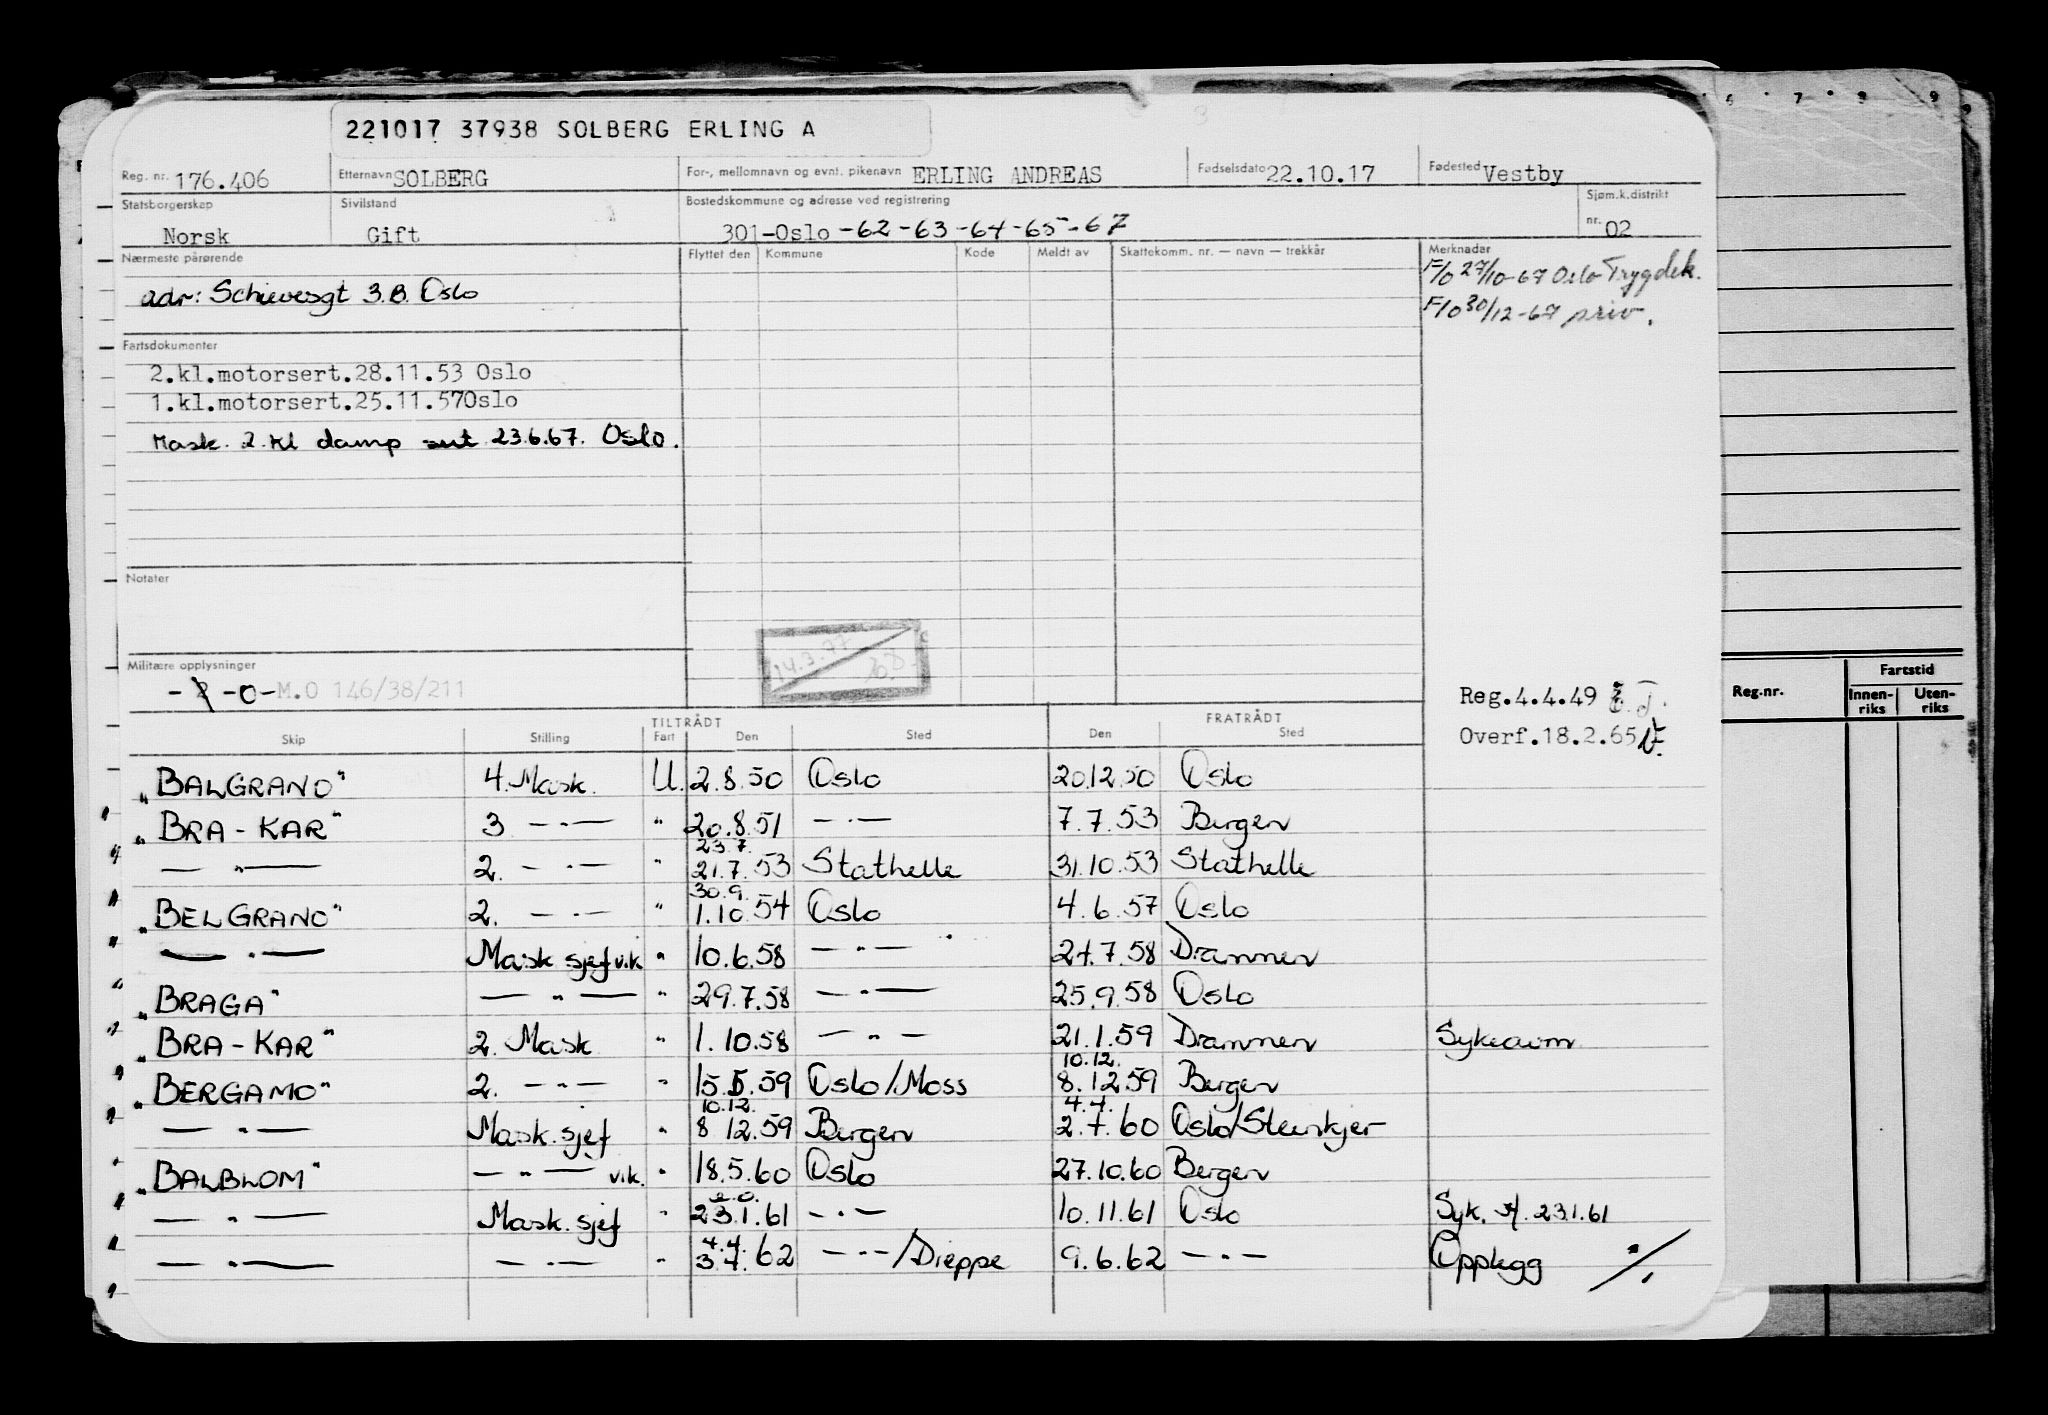 6 7 8 9
221017 37938 SOLBERG ERLING A
Reg. nr. 176.406 Etternavn SOLBERG For-, mellomnavn og evnt. pikenavn ERLING ANDREAS Fødselsdato 22.10.17 Fødested Vestby
Statsborgerskap Sivilstand Bostedskommune og adresse ved registrering Sjøm.k.distrikt
Norsk Gift 301-Oslo -62-63-64-65-67 nr. 02
Nærmeste pårørende Flyttet den Kommune Kode Meldt av Skattekomm. nr. — navn — trekkår Merknader
F/o 27/10-67 Oslo Trygdek.
adr: Schivesgt 3.B. Oslo
F/o 30/12-67 priv.
Fartsdokumenter
2.kl.motorsert.28.11.53 Oslo
1.kl.motorsert.25.11.57Oslo
Mask. 2.kl damp sert 23.6.67. Oslo.
Notater
14.3.77
Militære opplysninger
-0-M.O 146/38/211
Reg.4.4.49
Overf.18.2.65
Reg.nr. Fartstid
Innen-riks Uten-riks
TILTRÅDT FRATRÅDT
Skip Stilling Fart Den Sted Den Sted
„BALGRANO" 4. Mask. U. 2.8.50 Oslo 20.12.50 Oslo
„BRA-KAR" 3 — . — " 20.8.51 — . — 7.7.53 Bergen
23.7.
— " — 2. — . — " 21.7.53 Stathelle 31.10.53 Stathelle
30.9.
„BELGRANO" 2. — . — " 1.10.54 Oslo 4.6.57 Oslo
— " — Mask sjef vik " 10.6.58 — " — 24.7.58 Drammen
„BRAGA" — " — " 29.7.58 — " — 25.9.58 Oslo
„BRA-KAR" 2. Mask " 1.10.58 — " — 21.1.59 Drammen Sykeavm
10.12.
„BERGAMO" 2. — " — " 15.5.59 Oslo/Moss 8.12.59 Bergen
10.12. 4.4.
— " — Mask. sjef " 8 12.59 Bergen 2.4.60 Oslo/Steinkjer
„BALBLOM" — " — vik. " 18.5.60 Oslo 27.10.60 Bergen
— " — Mask. sjef " 23.1.61 — . — 10.11.61 Oslo Syk. 23.1.61
4.4.
— " — — . — " 3.4.62 — . — /Dieppe 9.6.62 — . — Opplegg ./.